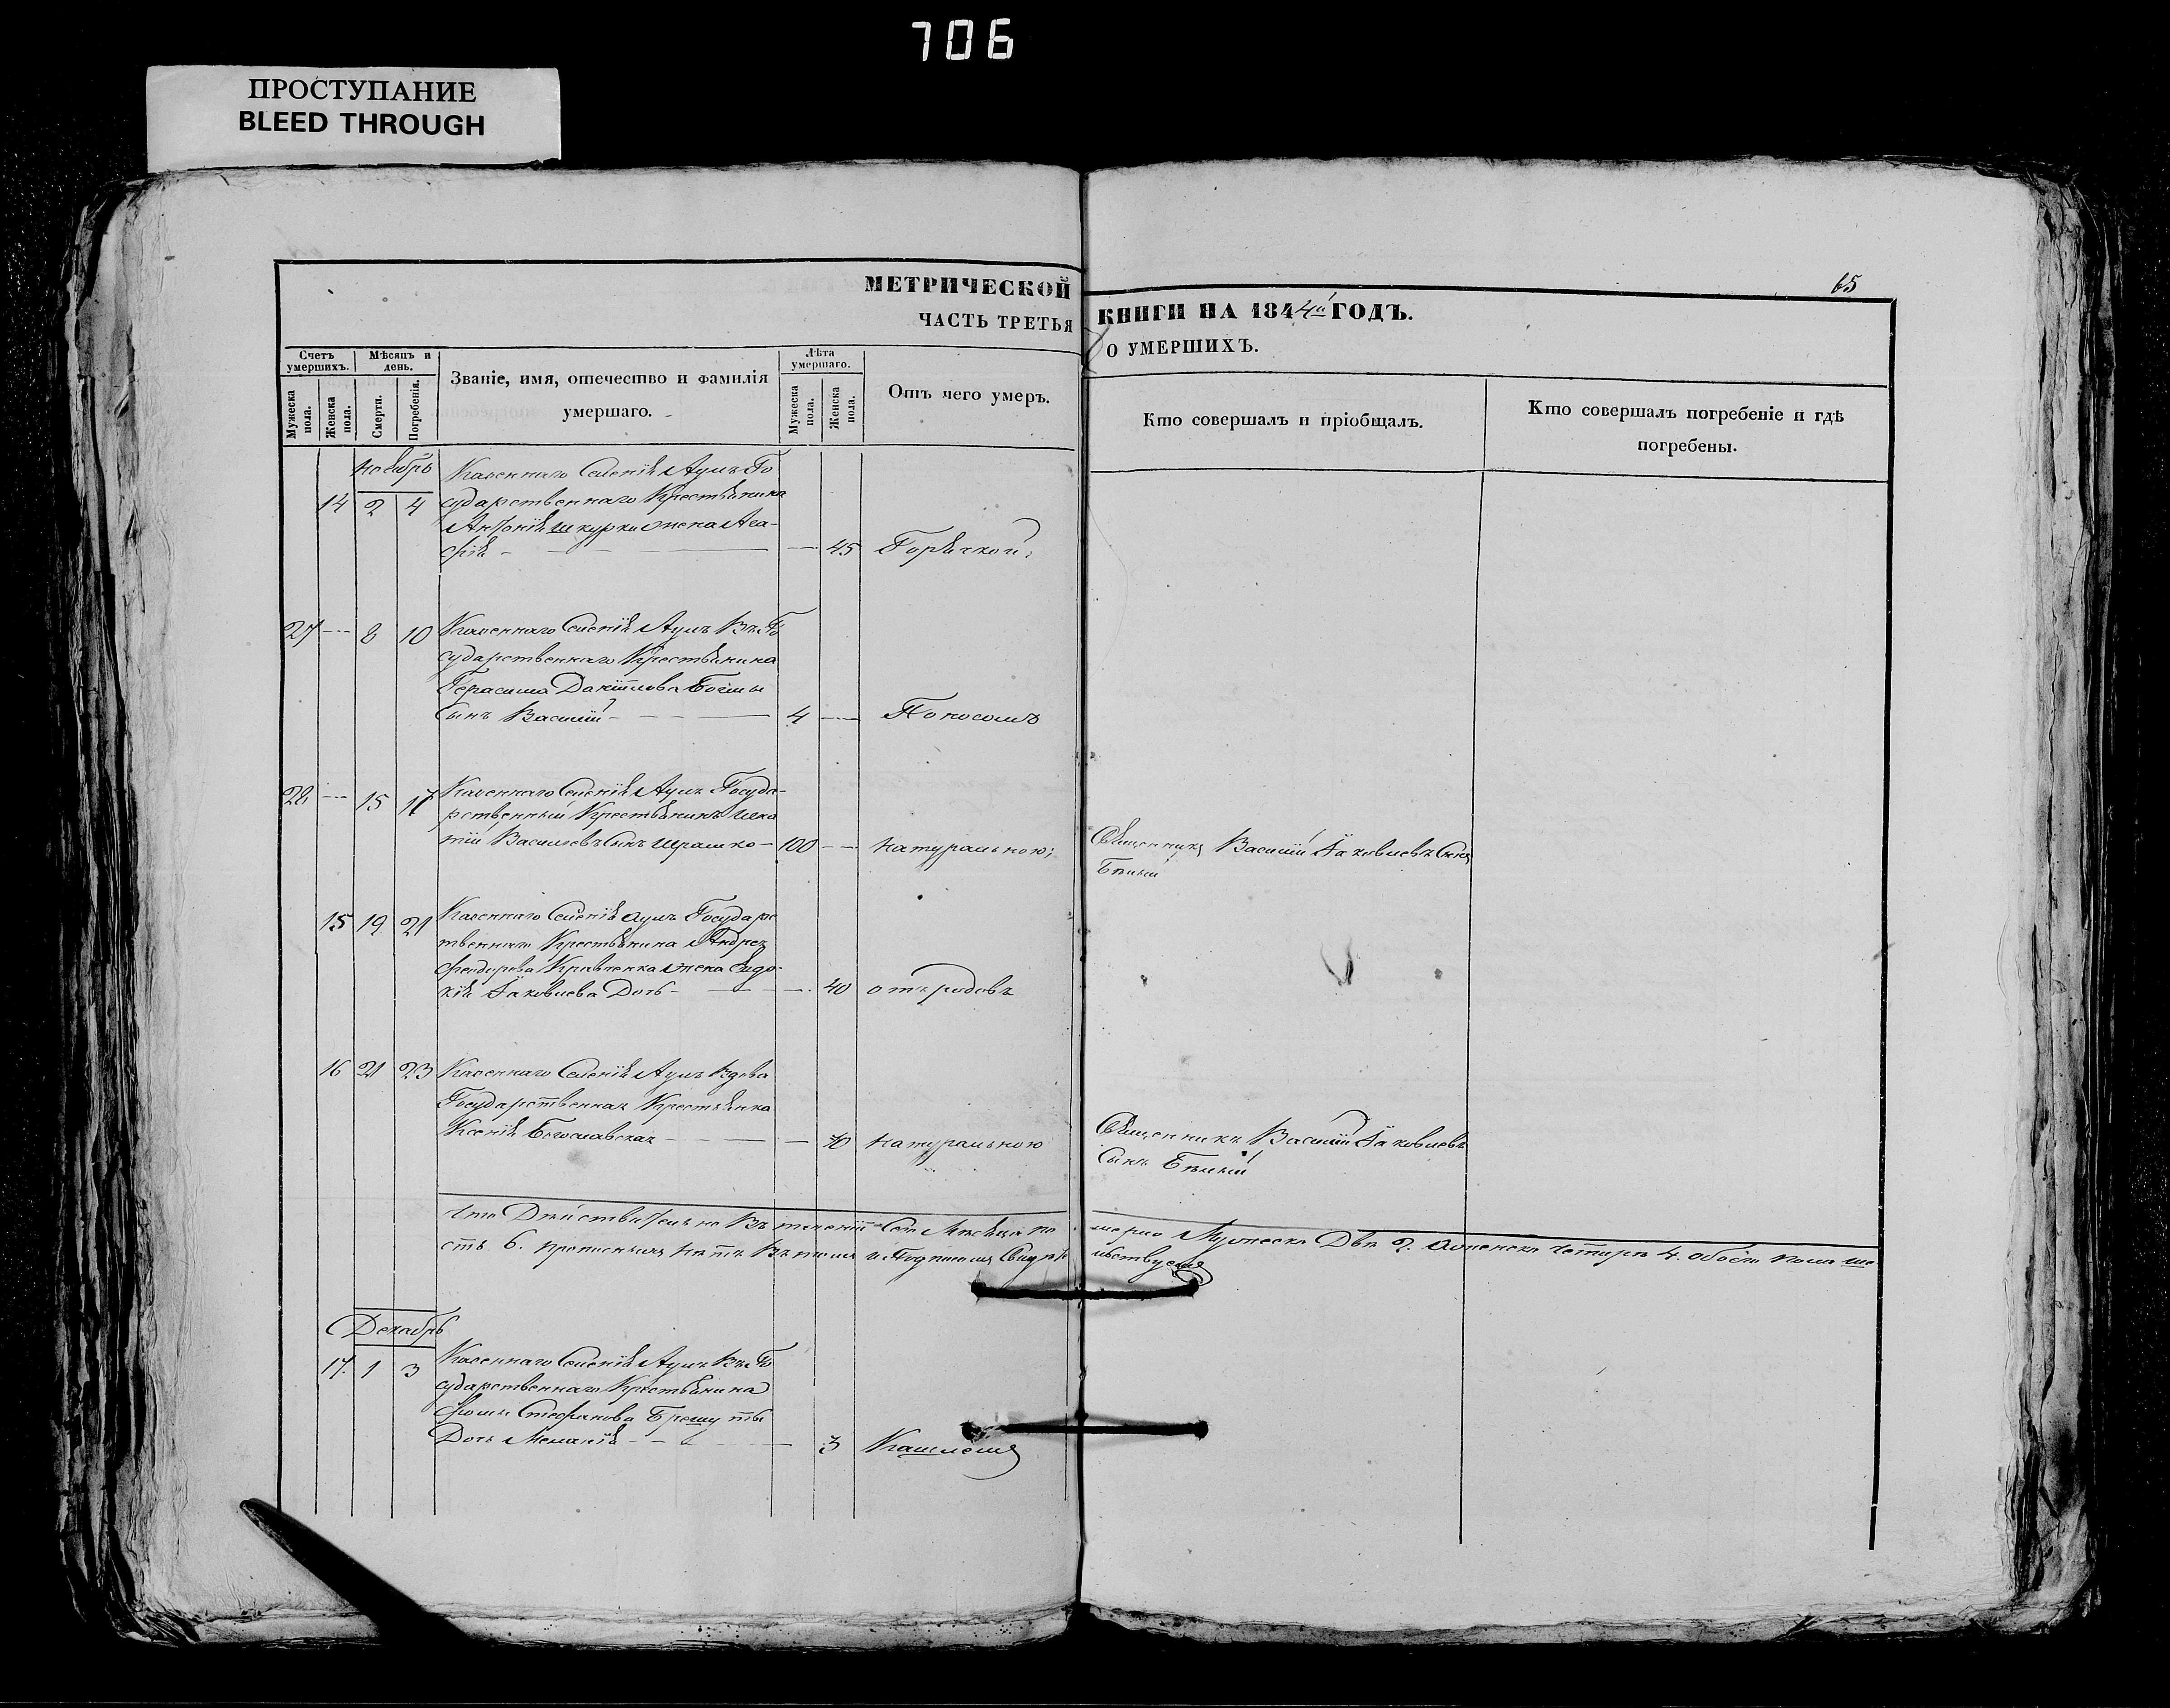 706
ПРОСТУПАНИЕ
BLEED THROUGH
65
МЕТРИЧЕСКОЙ КНИГИ НА 1844й ГОДЪ.
ЧАСТЬ ТРЕТЬЯ О УМЕРШИХЪ.
Счетъ умершихъ.
Мужеска пола.
Женска пола.
Мѣсяцъ и день.
Смерти.
Погребенія.
Званіе, имя, отечество и фамилія умершаго.
Лѣта умершаго.
Мужеска пола.
Женска пола.
Отъ чего умеръ.
Кто совершалъ и пріобщалъ.
Кто совершалъ погребеніе и гдѣ погребены.
Ноябрь
14 2 4 Казеннаго Селенія Аулъ Го
сударственнаго Крестьянина
Антонія Шкурки жена Ага-
фія — — 45 Горячкой;
27 — 8 10 Казеннаго Селенія Аулъ Въ Го
сударственнаго Крестьянина
Герасима Даніилова
Сынъ Василій — 4 — Поносомъ
28 — 15 17 Казеннаго Селенія Аулъ Госуда-
рственный Крестьянинъ Игна
тій Васильевъ Сынъ — 100 — натуральною; Священникъ Василій Іаковлевъ Сынъ
Бѣлый
15 19 21 Казеннаго Селенія Аулъ Государс
твеннаго Крестьянина Андрея
Феодорова Кравченка жена Евдо-
кія Іаковлева Дочь — — 40 отъ родовъ
16 21 23 Казеннаго Селенія Аулъ Вдова
Государственная Крестьянка
Ксенія Богославская — — 70 натуральною Священникъ Василій Іаковлевъ
Сынъ Бѣлый
Что Дѣйствительно Въ теченіи Сего Мѣсяца по мерло Мужеска Два 2. Женска Четыре 4. обоего пола ше
сть 6. прописныхъ нѣтъ Въ томъ и Подписомъ Свидѣте льствуемъ
Декабрь
17. 1 3 Казеннаго Селенія Аулъ Въ Го
сударственнаго Крестьянина
Фомы Стефанова
Дочь Меланія — — 3 Кашлемъ